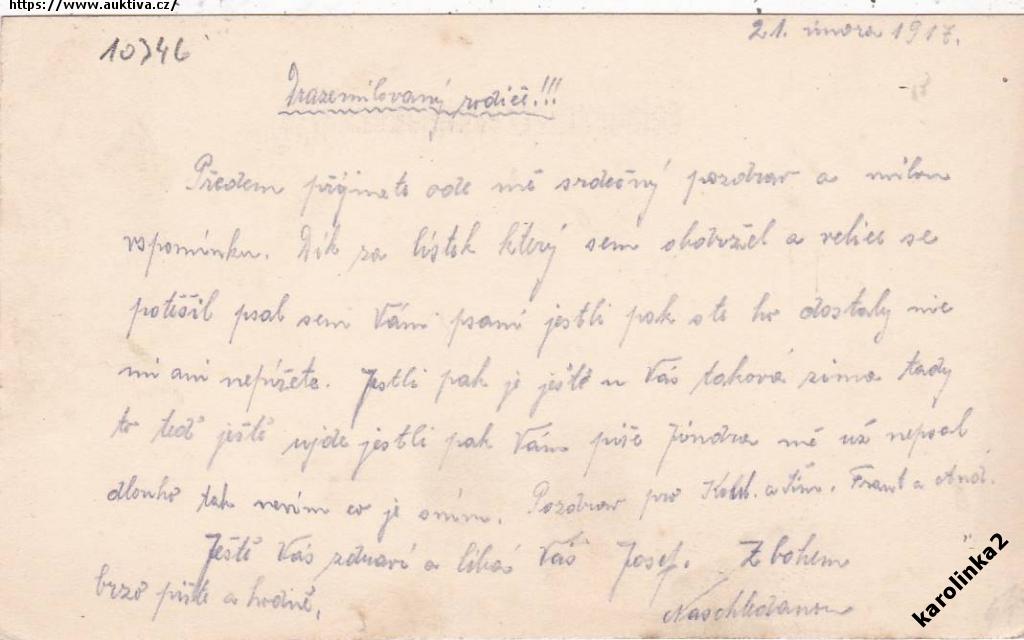 https://www.auktiva.cz/
21. února 1917.
10346
Drazemilovaný rodiče!!!
Předem přijmete ode mě srdečný pozdrav a milou
vspomínku. Dík za lístek který sem obdržel a velice se
potěšil psal sem Vám psaní jestli pak ste ho dostaly nic
mi ani nepíšete. Jestli pak je ještě u Vás taková zima tady
to teď ještě ujde jestli pak Vám píše Jindra mě už nepsal
dlouho tak nevím co je sním. Pozdrav pro a Frant a And.
Ještě Vás zdraví a líbá Váš Josef. Zbohem
brzo pište a hodně. Naschledanou
karolinka2